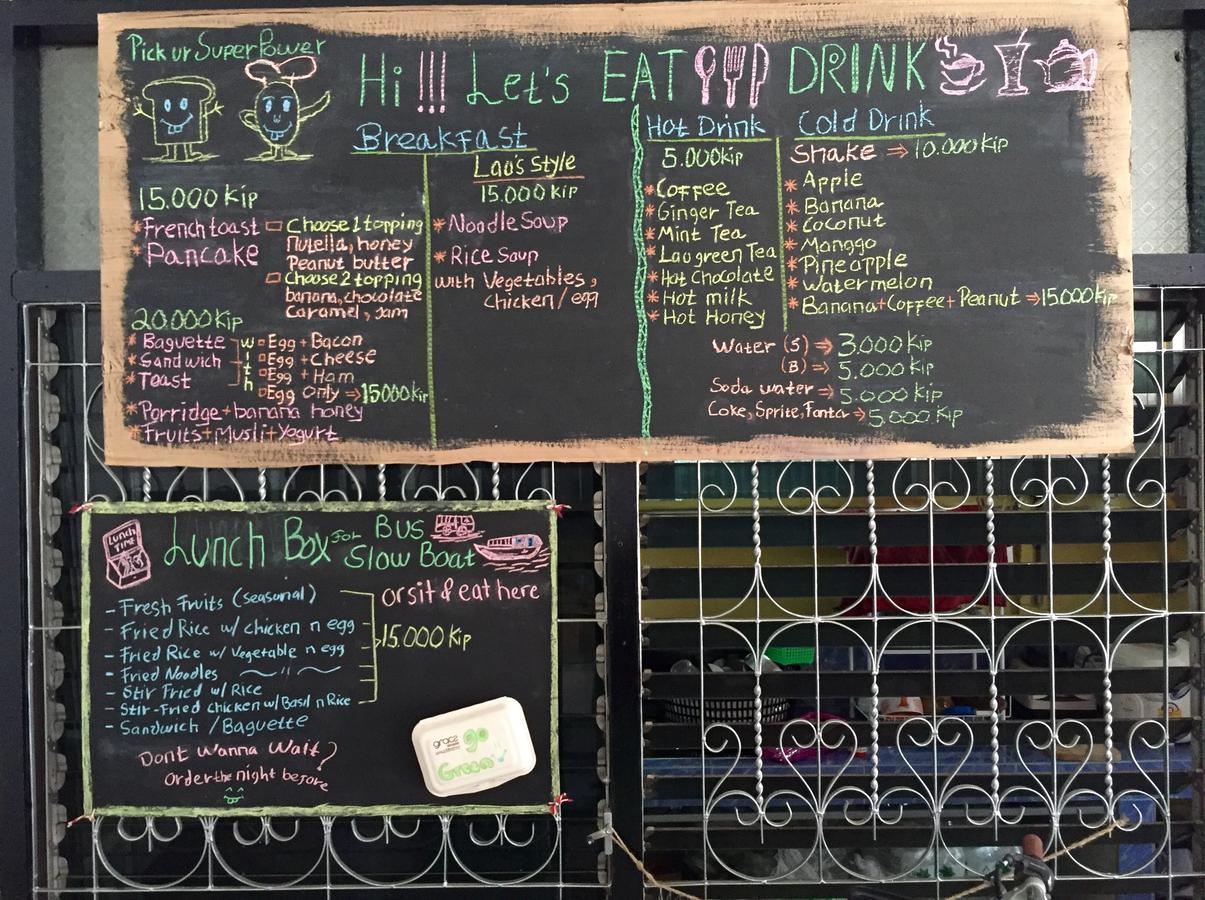 Pick ur SuperPower
Hi !!! Let's EAT DRINK
Breakfast
15.000 Kip
* French toast
* Pancake
Choose 1 topping
Nutella, honey
Peanut butter
Choose 2 topping
banana, chocolate
Caramel, Jam
20.000 Kip
* Baguette
* Sandwich
* Toast
with
Egg + Bacon
Egg + Cheese
Egg + Ham
Egg only ⇒ 15000 Kip
* Porridge + banana honey
* Fruits + Musli + Yogurt
Lao's Style
15.000 Kip
* Noodle Soup
* Rice Soup
with Vegetables,
chicken / egg
Hot Drink
5.000 Kip
* Coffee
* Ginger Tea
* Mint Tea
* Lao green Tea
* Hot Chocolate
* Hot milk
* Hot Honey
Cold Drink
Shake ⇒ 10.000 Kip
* Apple
* Banana
* Coconut
* Manggo
* Pineapple
* Watermelon
* Banana + Coffee + Peanut ⇒ 15000 Kip
Water (S) ⇒ 3.000 Kip
(B) ⇒ 5.000 Kip
Soda water ⇒ 5.000 Kip
Coke, Sprite, Fanta ⇒ 5.000 Kip
LUNCH TIME
Lunch Box for Bus
Slow Boat
or sit & eat here
- Fresh Fruits (seasonal)
- Fried Rice w/ chicken n egg
- Fried Rice w/ Vegetable n egg
- Fried Noodles ~ " ~
- Stir Fried w/ Rice
- Stir-Fried chicken w/ Basil n Rice
- Sandwich / Baguette
15.000 Kip
Dont Wanna Wait?
Order the night before
gracz go
Green